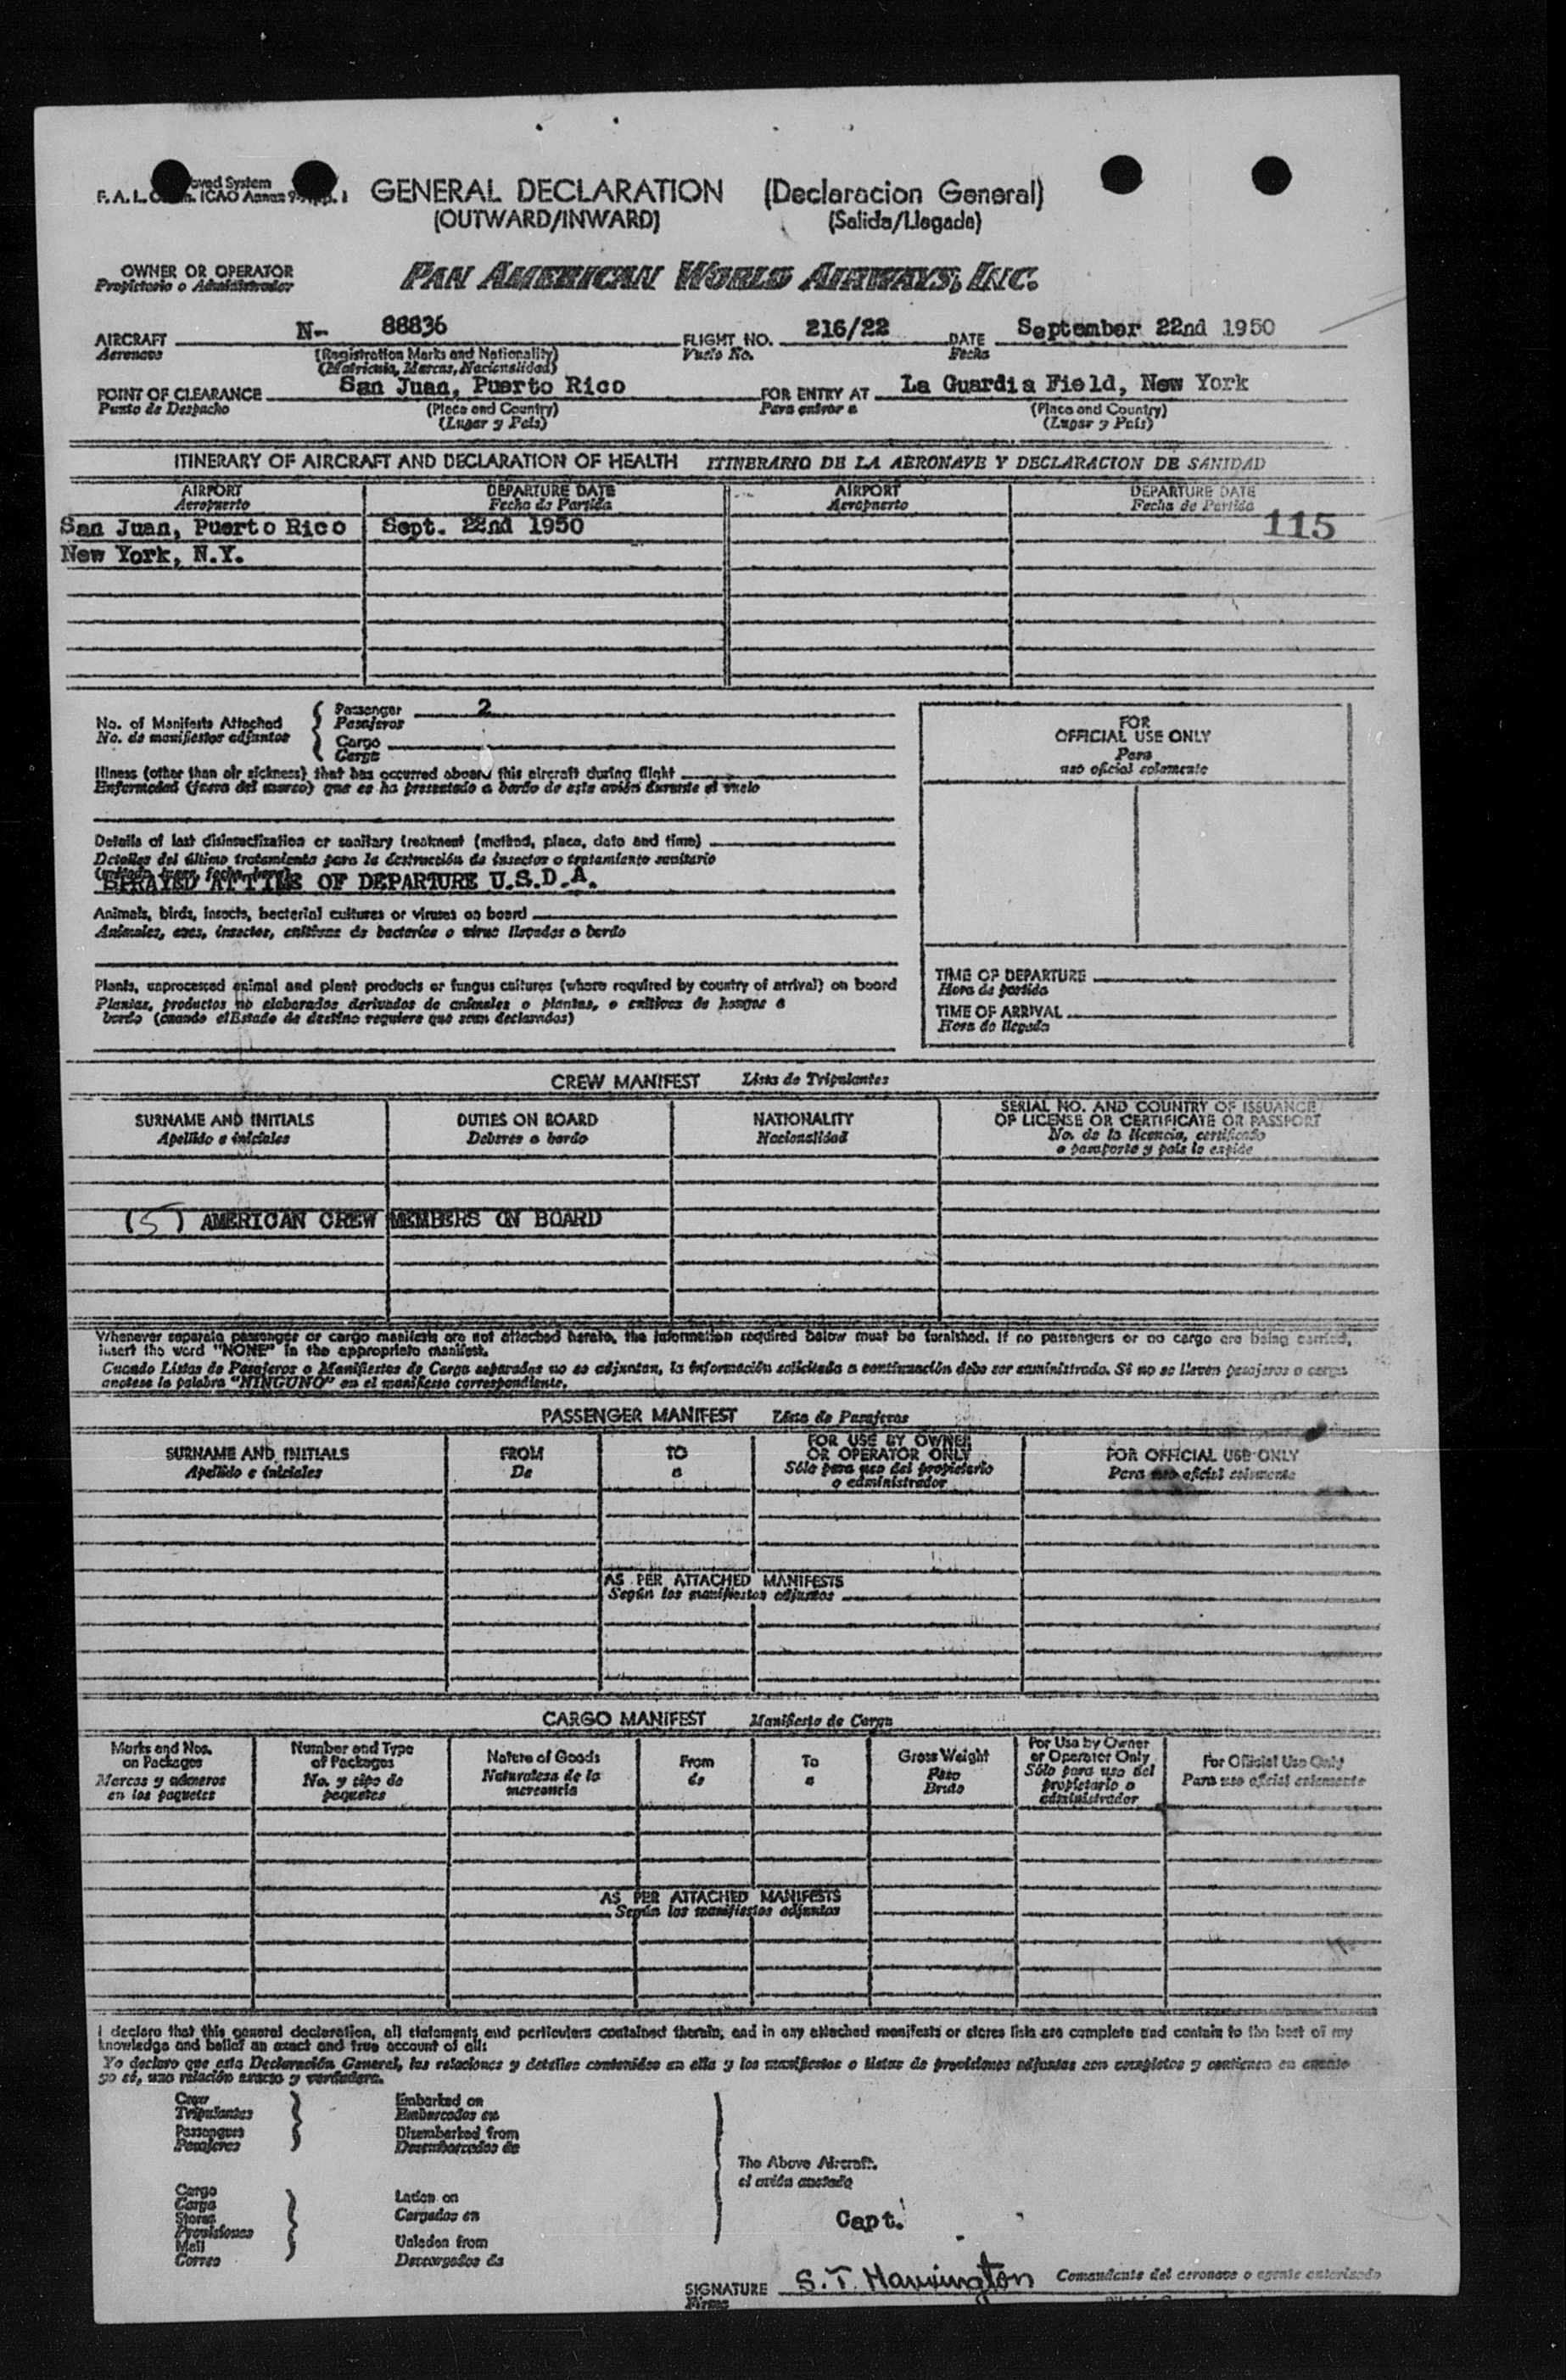 GENERAL DECLARATION (Declaracion General)
(OUTWARD/INWARD) (Salida/Llegada)
OWNER OR OPERATOR PAN AMERICAN WORLD AIRWAYS, INC.
Propietario o Administrador
AIRCRAFT N- 88836 FLIGHT NO. 216/22 DATE September 22nd 1950
Aeronave (Registration Marks and Nationality) Vuelo No. Fecha
(Matricula, Marcas, Nacionalidad)
POINT OF CLEARANCE San Juan, Puerto Rico FOR ENTRY AT La Guardia Field, New York
Punto de Despacho (Place and Country) Para entrar a (Place and Country)
(Lugar y País) (Lugar y País)
ITINERARY OF AIRCRAFT AND DECLARATION OF HEALTH ITINERARIO DE LA AERONAVE Y DECLARACION DE SANIDAD
AIRPORT DEPARTURE DATE AIRPORT DEPARTURE DATE
Aeropuerto Fecha de Partida Aeropuerto Fecha de Partida
San Juan, Puerto Rico Sept. 22nd 1950 115
New York, N.Y.
No. of Manifests Attached Passenger 2
No. de manifiestos adjuntos Pasajeros
Cargo
Carga
FOR
OFFICIAL USE ONLY
Para
uso oficial solamente
Illness (other than air sickness) that has occurred aboard this aircraft during flight
Enfermedad (fuera del mareo) que se ha presentado a bordo de este avión durante el vuelo
Details of last disinsectization or sanitary treatment (method, place, date and time)
Detalles del último tratamiento para la destrucción de insectos o tratamiento sanitario
SPRAYED AT TIME OF DEPARTURE U.S.D.A.
Animals, birds, insects, bacterial cultures or viruses on board
Animales, aves, insectos, cultivos de bacterias o virus llevados a bordo
Plants, unprocessed animal and plant products or fungus cultures (where required by country of arrival) on board
Plantas, productos no elaborados derivados de animales o plantas, o cultivos de hongos a
bordo (cuando el Estado de destino requiere que sean declarados)
TIME OF DEPARTURE
Hora de partida
TIME OF ARRIVAL
Hora de llegada
CREW MANIFEST Lista de Tripulantes
SURNAME AND INITIALS DUTIES ON BOARD NATIONALITY SERIAL NO. AND COUNTRY OF ISSUANCE
OF LICENSE OR CERTIFICATE OR PASSPORT
Apellido e iniciales Deberes a bordo Nacionalidad No. de la licencia, certificado
o pasaporte y país lo expide
(5) AMERICAN CREW MEMBERS ON BOARD
Whenever separate passenger or cargo manifests are not attached hereto, the information required below must be furnished. If no passengers or no cargo are being carried,
insert the word "NONE" in the appropriate manifest.
Cuando Listas de Pasajeros o Manifiestos de Carga separados no se adjuntan, la información solicitada a continuación debe ser suministrada. Si no se llevan pasajeros o carga
anotese la palabra "NINGUNO" en el manifiesto correspondiente.
PASSENGER MANIFEST Lista de Pasajeros
SURNAME AND INITIALS FROM TO FOR USE BY OWNER OR OPERATOR ONLY FOR OFFICIAL USE ONLY
Apellido e iniciales De a Sólo para uso del propietario o administrador Para uso oficial solamente
AS PER ATTACHED MANIFESTS
Según los manifiestos adjuntos
CARGO MANIFEST Manifiesto de Carga
Marks and Nos. on Packages Number and Type of Packages Nature of Goods From To Gross Weight For Use by Owner or Operator Only For Official Use Only
Marcas y números en los paquetes No. y tipo de paquetes Naturaleza de la mercancía de a Peso Bruto Sólo para uso del propietario o administrador Para uso oficial solamente
AS PER ATTACHED MANIFESTS
Según los manifiestos adjuntos
I declare that this general declaration, all statements and particulars contained therein, and in any attached manifests or stores lists are complete and contain to the best of my
knowledge and belief an exact and true account of all:
Yo declaro que esta Declaración General, las relaciones y detalles contenidos en ella y los manifiestos o listas de provisiones adjuntas son completos y contienen en cuanto
yo sé, una relación exacta y verdadera.
Crew Embarked on
Tripulantes Embarcados en
Passengers Disembarked from
Pasajeros Desembarcados de
The Above Aircraft.
el avión anotado
Cargo Laden on
Carga Cargados en
Stores
Provisiones
Mail Unladen from
Correo Descargados de
Capt.
SIGNATURE S. T. Harrington Comandante del aeronave o agente autorizado
Firma